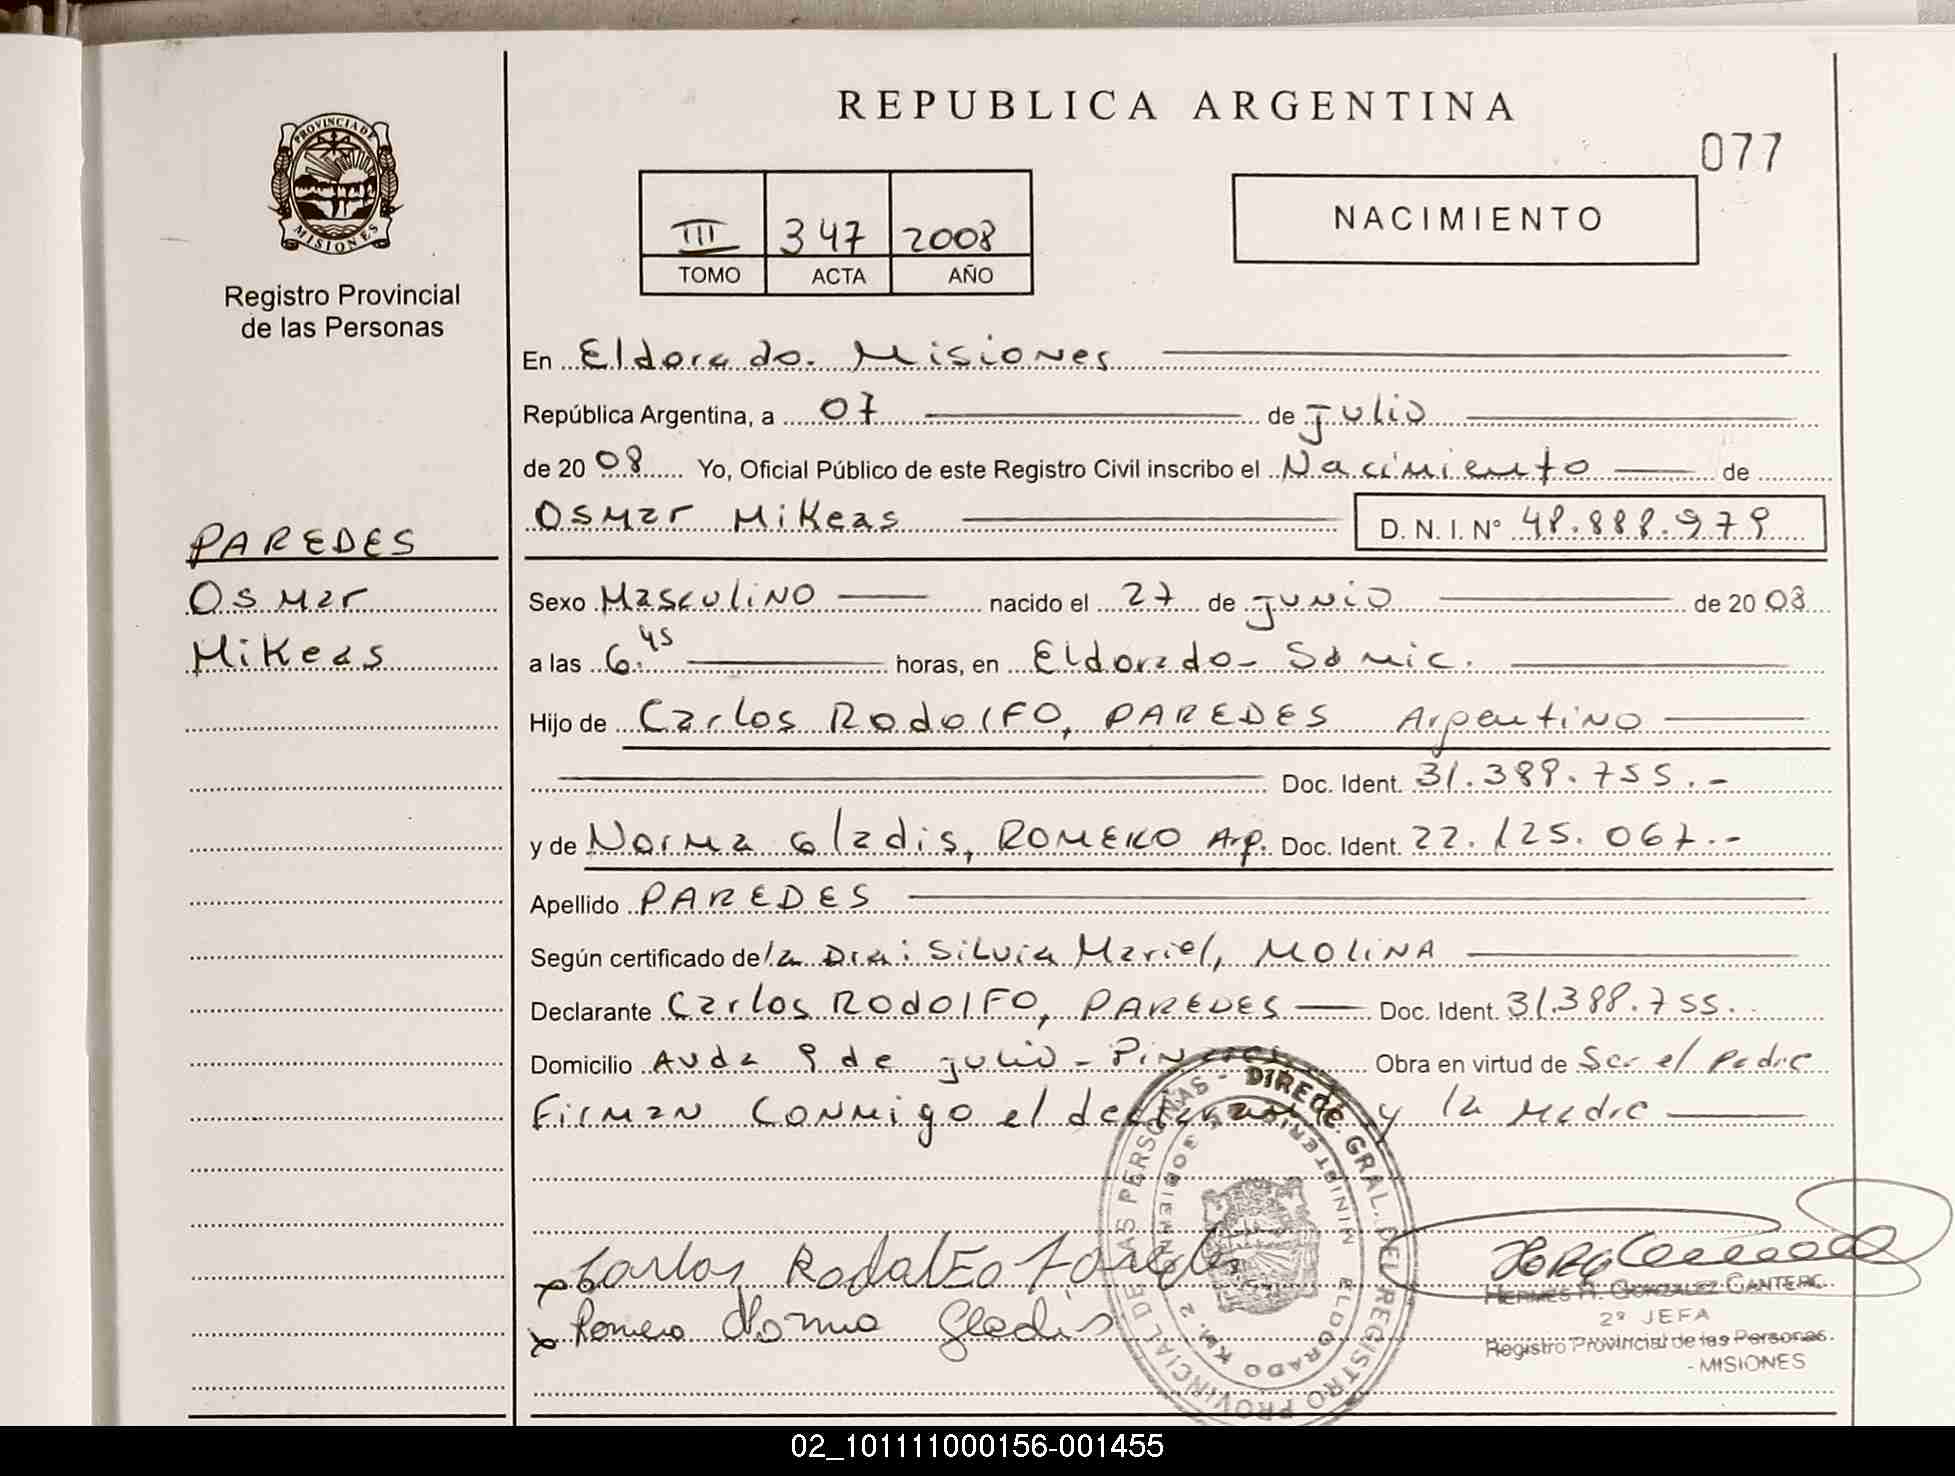 REPUBLICA ARGENTINA
077
PROVINCIA DE
MISIONES
Registro Provincial
de las Personas
III 347 2008
TOMO ACTA AÑO
NACIMIENTO
En Eldorado. Misiones
República Argentina, a 07 de julio
de 2008 Yo, Oficial Público de este Registro Civil inscribo el Nacimiento de
Osmar Mikeas D. N. I. N° 48.888.979
PAREDES
Osmar
Mikeas
Sexo Masculino nacido el 27 de junio de 2008
a las 6.45 horas, en Eldorado- Samic.
Hijo de Carlos Rodolfo, PAREDES Argentino
Doc. Ident. 31.388.755.-
y de Norma Gladis, ROMERO Arg. Doc. Ident. 22.125.067.-
Apellido PAREDES
Según certificado de la Dra: Silvia Mariel, MOLINA
Declarante Carlos Rodolfo, PAREDES Doc. Ident. 31.388.755.
Domicilio Avda 9 de julio - Obra en virtud de Ser el padre
Firman conmigo el declarante y la madre
Carlos Rodolfo Paredes
Romero Norma Gladis
DIRECC. GRAL. DEL REGISTRO PROVINCIAL DE LAS PERSONAS -
MINISTERIO DE GOBIERNO
ELDORADO KM. 2
HERMES R. GONZALEZ CANTERO
2º JEFA
Registro Provincial de las Personas
- MISIONES
02_101111000156-001455